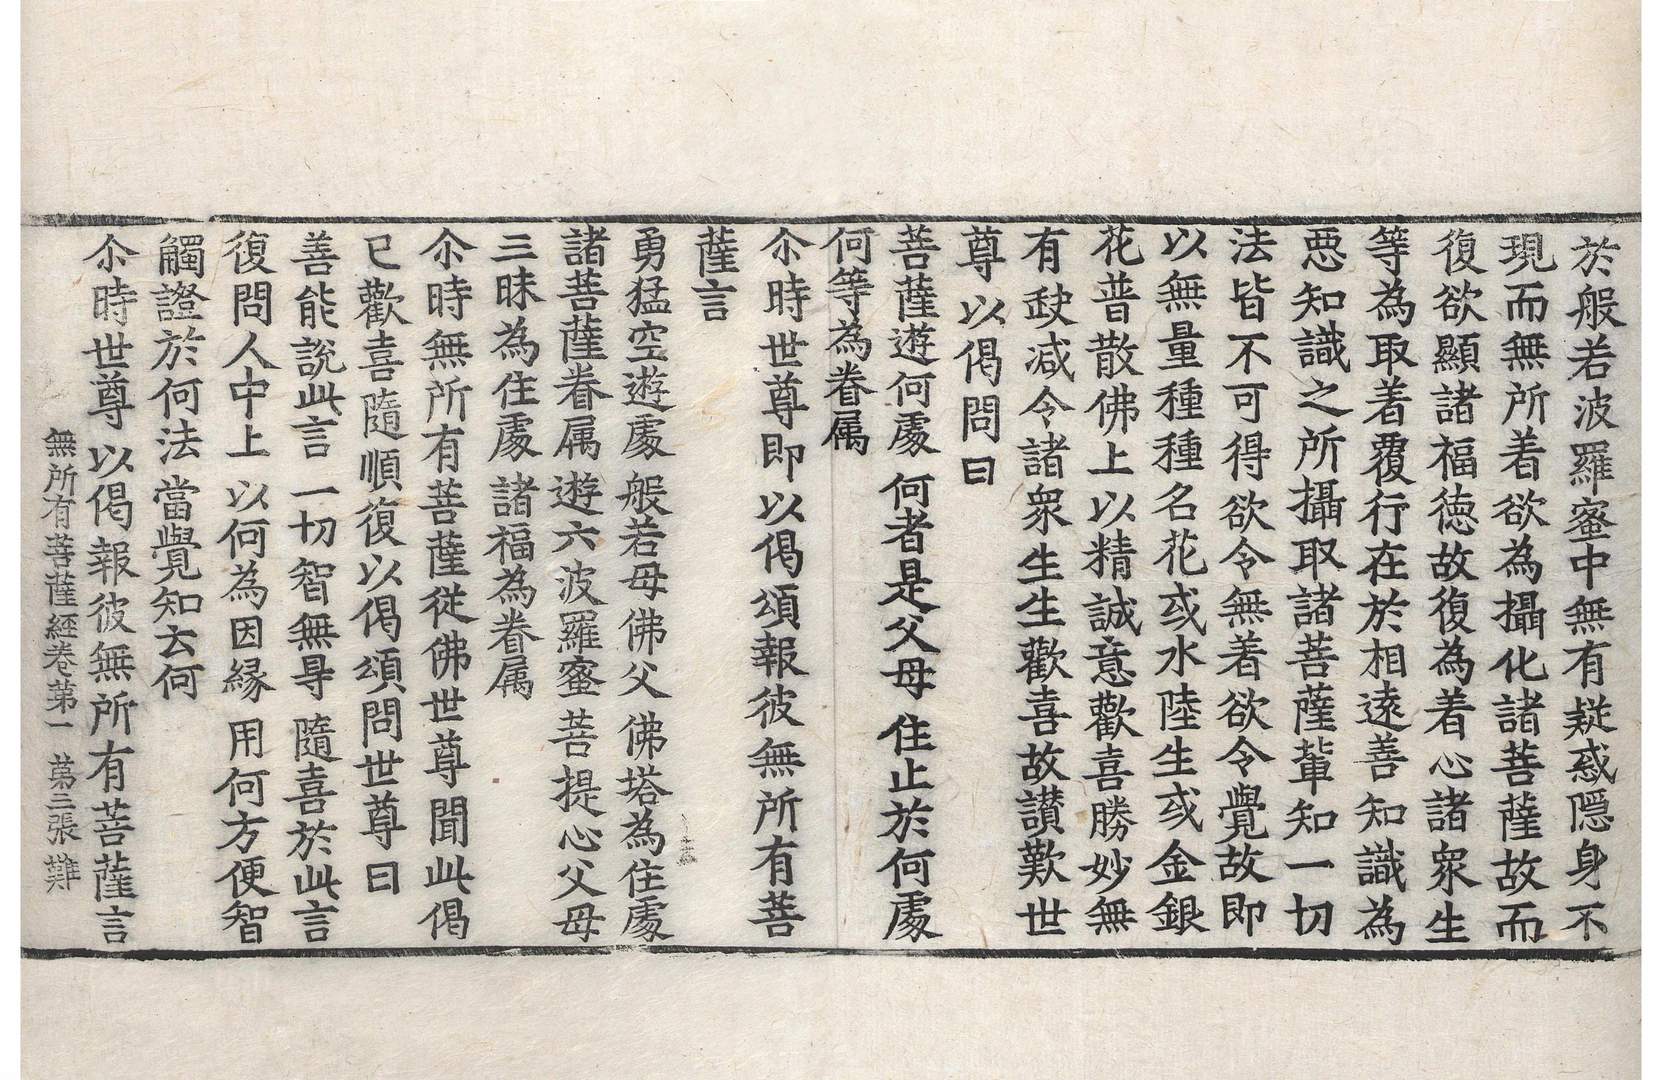 於般若波羅蜜中無有疑惑隱身不
現而無所着欲為攝化諸菩薩故而
復欲顯諸福徳故復為着心諸衆生
等為取着覆行在於相遠善知識為
惡知識之所攝取諸菩薩軰知一切
法皆不可得欲令無著欲令覺故即
以無量種種名花或水陸生或金銀
花普散佛上以精誠意歡喜勝妙無
有𡙇减令諸衆生生歡喜故讃歎世
尊以偈問曰
菩薩遊何䖏 何者是父母 住止於何䖏
何等為眷属
尒時世尊即以偈頌報彼無所有菩
薩言
勇猛空遊䖏 般若母佛父 佛塔為住䖏
諸菩薩眷属 遊六波羅蜜 菩提心父母
三昧為住䖏 諸福為眷属
尒時無所有菩薩從佛世尊聞此偈
已歡喜隨順復以偈頌問世尊曰
善能說此言 一切智無㝵 隨喜於此言
復問人中上 以何為因縁 用何方便智
觸證於何法 當覺知云何
尒時世尊以偈報彼無所有菩薩言
無所有菩薩經卷第一 第三張 難